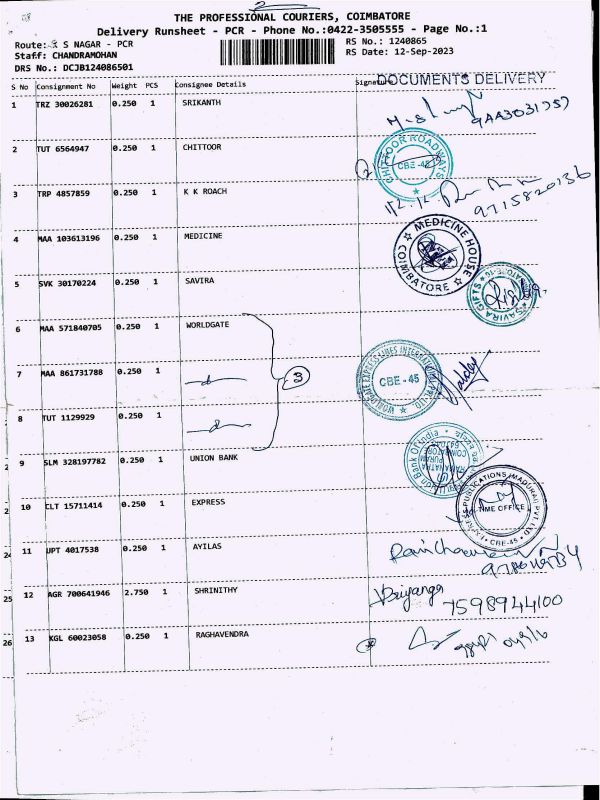 2
THE PROFESSIONAL COURIERS, COIMBATORE
Delivery Runsheet - PCR - Phone No.:0422-3505555 - Page No.:1
Route: R S NAGAR - PCR
RS No.: 1240865
Staff: CHANDRAMOHAN
RS Date: 12-Sep-2023
DRS No.: DCJB124086501
DOCUMENTS DELIVERY
S No Consignment No Weight PCS Consignee Details Signature
1 TRZ 30026281 0.250 1 SRIKANTH
2 TUT 6564947 0.250 1 CHITTOOR
CHITTOOR ROADWAYS
CBE-45
3 TRP 4857859 0.250 1 K K ROACH
9715820136
4 MAA 103613196 0.250 1 MEDICINE
MEDICINE HOUSE
COIMBATORE
5 SVK 30170224 0.250 1 SAVIRA
SAVIRA GIFTS
6 MAA 571840705 0.250 1 WORLDGATE
7 MAA 861731788 0.250 1
3
CBE - 45
8 TUT 1129929 0.250 1
9 SLM 328197782 0.250 1 UNION BANK
Union Bank Of India
10 CLT 15711414 0.250 1 EXPRESS
EXPRESS PUBLICATIONS (MADURAI) PVT LTD
TIME OFFICE
CBE-45
11 UPT 4017538 0.250 1 AYILAS
12 AGR 700641946 2.750 1 SHRINITHY
Priyanga
7598944100
13 KGL 60023058 0.250 1 RAGHAVENDRA
24
25
26